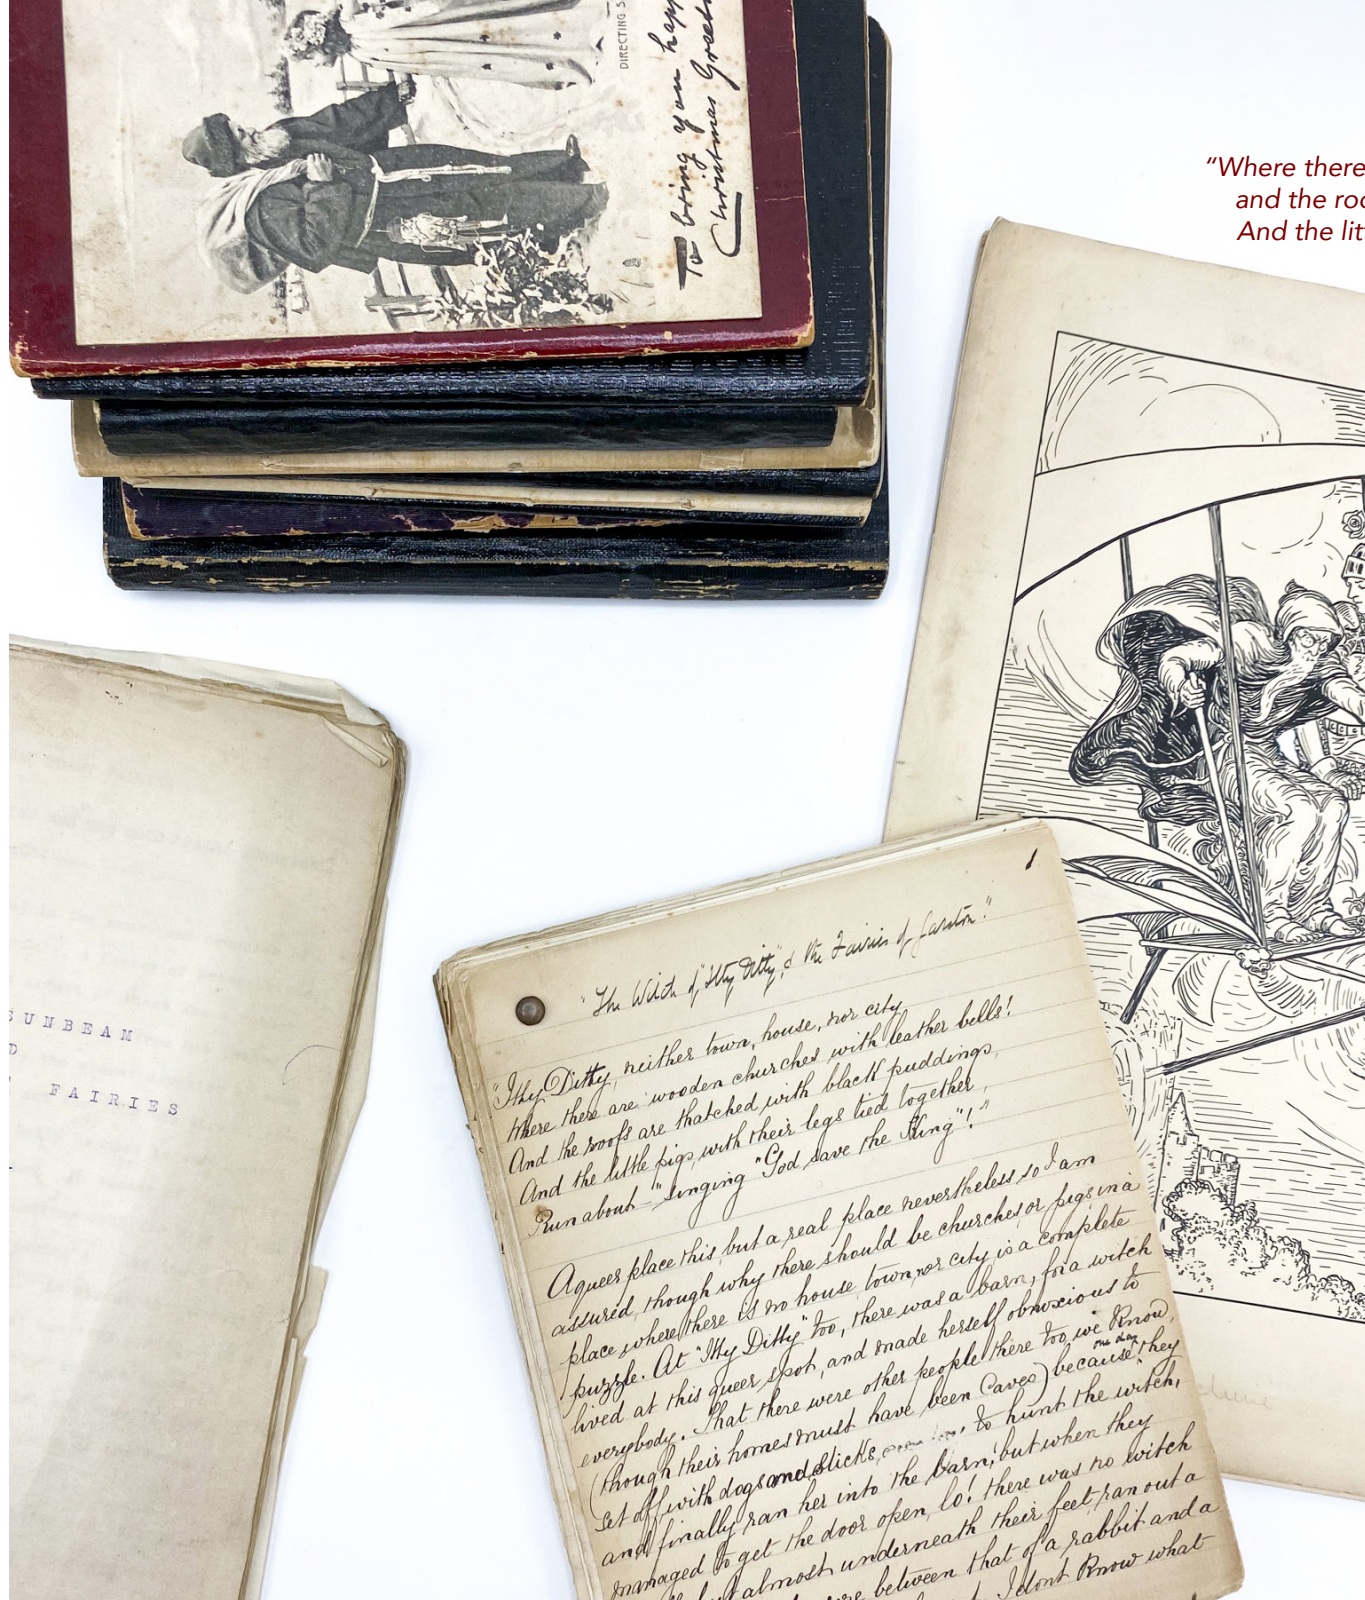 DIRECTING S
To bring you happ
Christmas Greet
“Where there
and the roo
And the lit
SUNBEAM
D
FAIRIES
1
"The Witch of "Itty Ditty", & the Fairies of
"Itty Ditty, neither town, house, nor city
Where there are wooden churches with leather bells!
And the roofs are thatched with black puddings,
And the little pigs, with their legs tied together,
Run about - "singing "God save the King"!"
A queer place this, but a real place nevertheless so I am
assured, though why there should be churches, or pigs, in a
place where there is no house, town, nor city, is a complete
puzzle. At "Itty Ditty" too, there was a barn, for a witch
lived at this queer spot, and made herself obnoxious to
everybody. (That there were other people there too, we know,
(though their homes must have been Caves) because one day they
set off with dogs and sticks, to hunt the witch,
and finally ran her into the barn; but when they
managed to get the door open, lo! there was no witch
but almost underneath their feet ran out a
between that of a rabbit and a
I dont know what